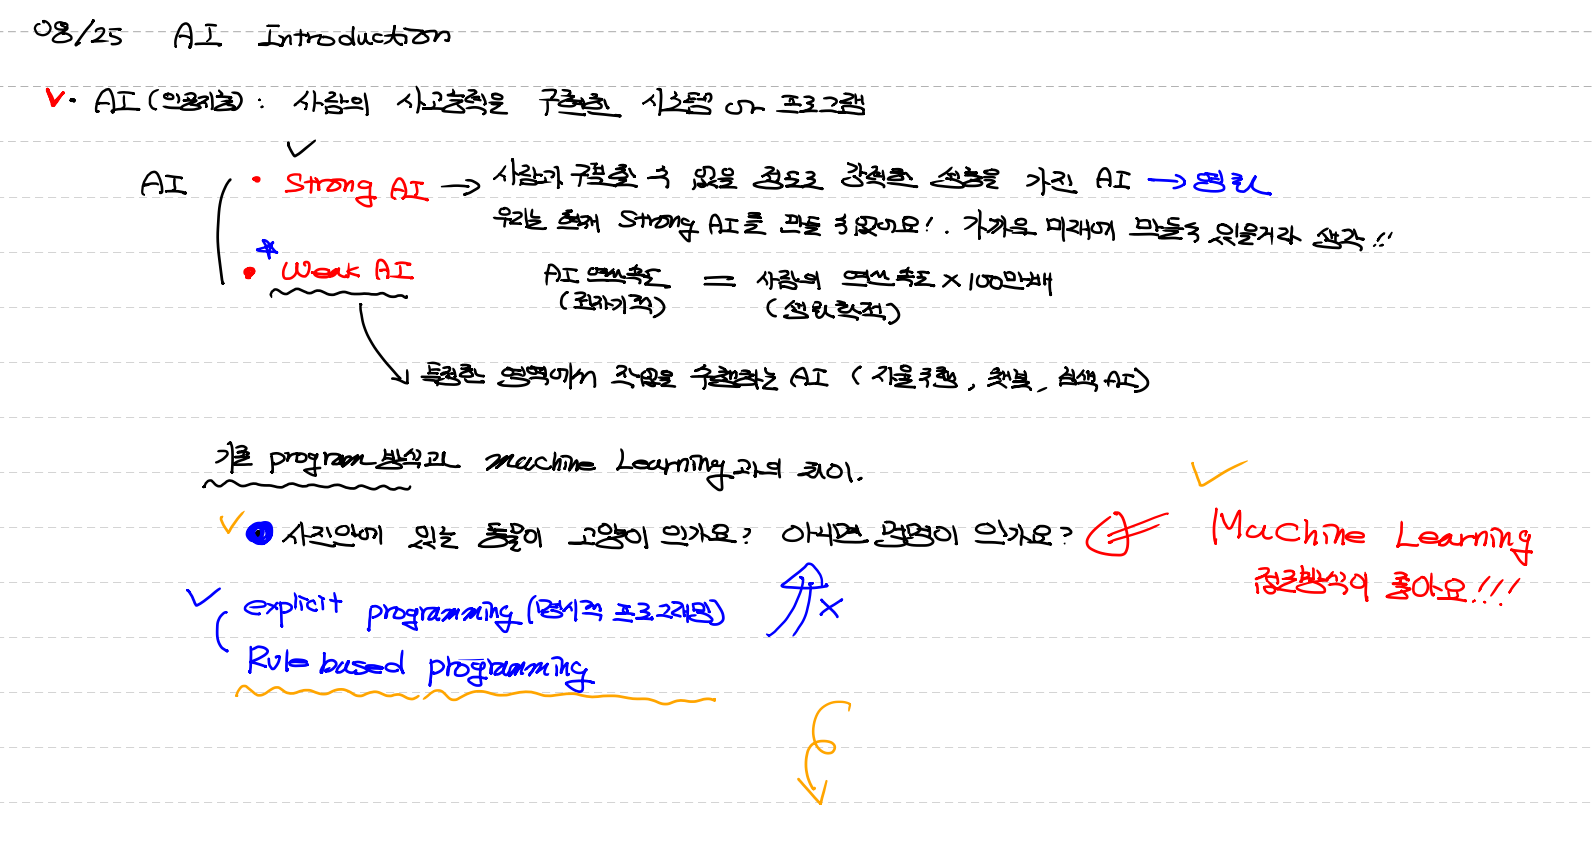 08/25 AI Introduction
AI (인공지능) : 사람의 사고능력을 구현한 시스템 or 프로그램
AI
Strong AI → 사람과 구분할 수 없을 정도로 강력한 성능을 가진 AI → 영화
우리는 현재 Strong AI를 만들 수 없어요!. 가까운 미래에 만들 수 있을거라 생각!!
Weak AI
AI 연산속도 = 사람의 연산속도 × 100만배
(전자기적) (생화학적)
특정한 영역에서 작업을 수행하는 AI ( 자율주행, 챗봇, 검색 AI)
기존 program 방식과 machine Learning과의 차이.
사진안에 있는 동물이 고양이 인가요? 아니면 멍멍이 인가요?
Machine Learning
접근방식이 좋아요!!!
explicit programming (명시적 프로그래밍)
X
Rule based programming